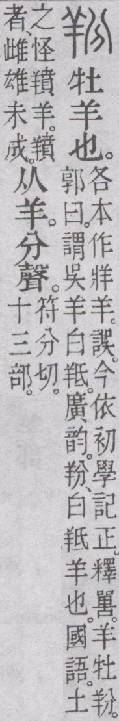 羒 牡羊也。
各本作牂羊。誤。今依初學記正。釋嘼。羊牡羒。
郭曰。謂吳羊白羝。廣韵。羒、白羝羊也。國語。土
之怪羵羊。羵
者、雌雄未成。
从羊。分聲。
符分切。
十三部。